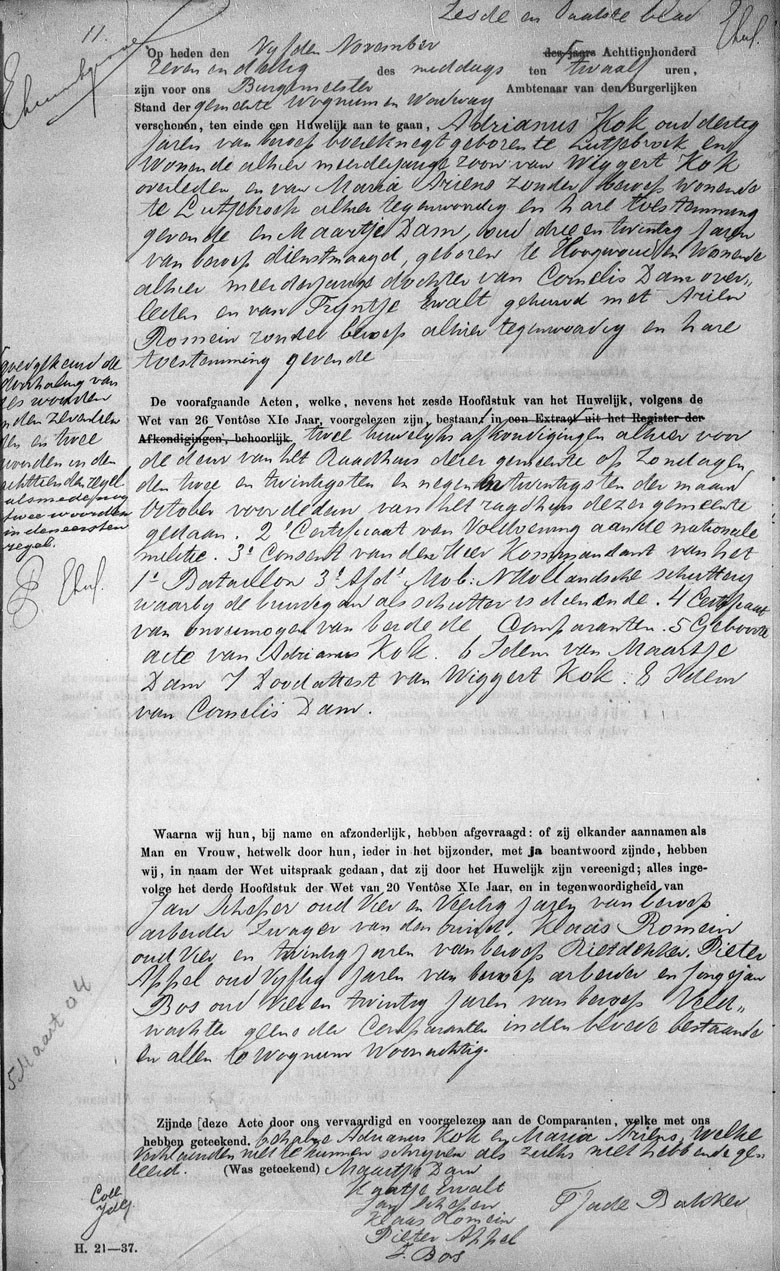 Zesde en Laatste blad
11.
Op heden den Vijfden November des jaars Achttienhonderd
Zeven en dertig des middags ten twaalf uren,
zijn voor ons Burgemeester Ambtenaar van den Burgerlijken
Stand der gemeente Wognum en Wadway
verschenen, ten einde een Huwelijk aan te gaan, Adrianus Kok oud dertig
Jaren van beroep boereknegt geboren te Lutjebroek en
Wonende alhier meerderjarige zoon van Wiggert Kok
overleden en van Maria Ariens zonder beroep wonende
te Lutjebroek alhier tegenwoordig en hare toestemming
gevende en Maartje Dam, oud drie en twintig Jaren
van beroep dienstmaagd, geboren te Hoogwoud en Wonende
alhier meerderjarige dochter van Cornelis Dam over„
leden en van Trijntje Ewalt gehuwd met Arien
Romein zonder beroep alhier tegenwoordig en hare
toestemming gevende
goedgekeurd de
doorhaling van
zes woorden
in den zevenden
en twee
woorden in den
achttienden regel
alsmede nog
twee woorden
in den eersten
regel.
De voorafgaande Acten, welke, nevens het zesde Hoofdstuk van het Huwelijk, volgens de
Wet van 26 Ventôse XIe Jaar, voorgelezen zijn, bestaan in een Extract uit het Register der
Afkondigingen, behoorlijk. twee huwelijks afkondigingen alhier voor
de deur van het Raadhuis dezer gemeente op Zondagen
den twee en twintigsten en negen en twintigsten der maand
October voor de deur van het raadhuis dezer gemeente
gedaan. 2º Certificaat van Voldoening aan de nationale
militie. 3º Consent van den Heer Kommandant van het
1e Bataillon 3e Afde Mob: NHollandsche schutterij
waarbij de bruidegom als schutter is dienende. 4 Certificaat
van onvermogen van beide de Comparanten. 5 Geboorte
acte van Adrianus Kok. 6 Idem van Maartje
Dam 7 Doodattest van Wiggert Kok. 8 Idem
van Cornelis Dam.
Waarna wij hun, bij name en afzonderlijk, hebben afgevraagd: of zij elkander aannamen als
Man en Vrouw, hetwelk door hun, ieder in het bijzonder, met ja beantwoord zijnde, hebben
wij, in naam der Wet uitspraak gedaan, dat zij door het Huwelijk zijn vereenigd; alles inge-
volge het derde Hoofdstuk der Wet van 20 Ventôse XIe Jaar, en in tegenwoordigheid van
Jan Scheper oud Vier en Veertig Jaren van beroep
arbeider Zwager van den bruid, Klaas Romein
oud Vier en twintig Jaren van beroep Rietdekker, Pieter
Appel oud Vijftig Jaren van beroep arbeider en Jongejan
Bos oud Vier en twintig Jaren van beroep Veld„
wachter geen der Comparanten in den bloede bestaande
en allen te Wognum Woonachtig.
5 Maart 04
Zijnde [deze Acte door ons vervaardigd en voorgelezen aan de Comparanten, welke met ons
hebben geteekend. behalve Adrianus Kok en Maria Ariens, welke
verklaarden niet te kunnen schrijven als zulks niet hebbende ge„
leerd. (Was geteekend) Maartje Dam
Trijntje Ewalt
Jan Scheper
Klaas Romein
Pieter Appel
J. Bos
Tjade Bakker
Coll
H. 21—37.